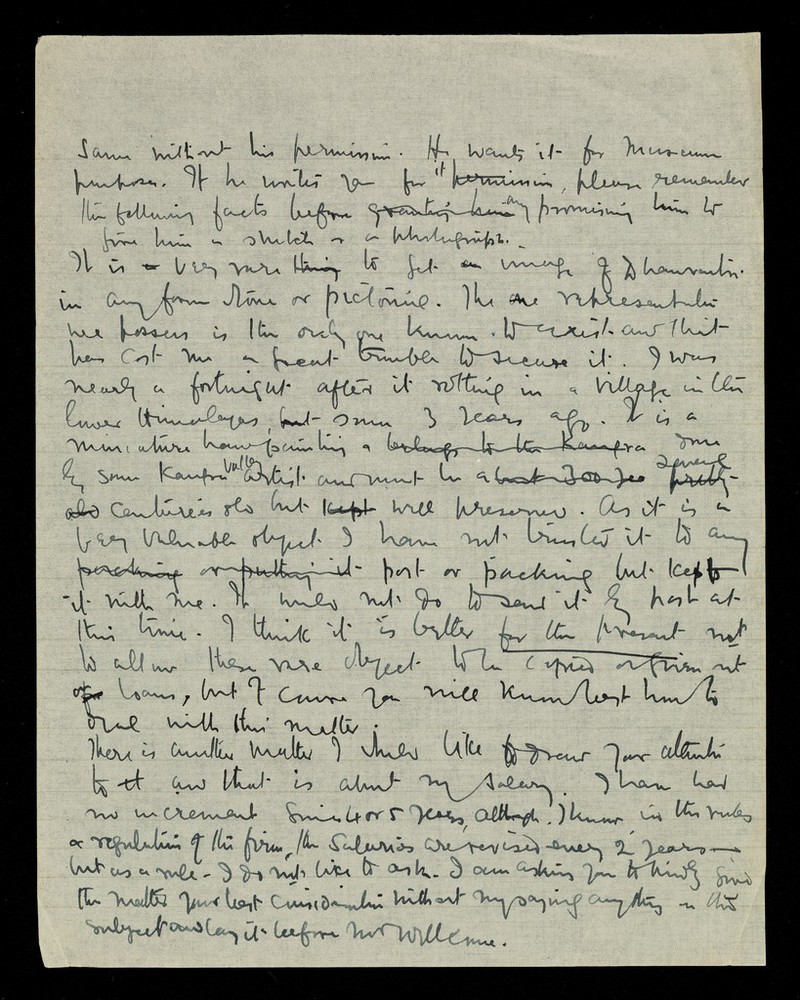 same without his permission. He wants it for Museum
purposes. If he writes you for it permission, please remember
the following facts before granting him any promising him to
give him a sketch or a photograph.
It is a very rare thing to get an image of Dhanvantri
in any form stone or pictorial. The one representation
we possess is the only one known to exist and that
has cost me a great trouble to secure it. I was
nearly a fortnight after it rotting in a village in the
lower Himalayas, but some 3 years ago. It is a
miniature hand painting a belongs to the Kangra done
by some Kangra valley artist and must be about 300 yrs several pretty
old centuries old but kept well preserved. As it is a
very valuable object I have not trusted it to any
packing or putting it post or packing but kept
it with me. It would not do to send it by post at
this time. I think it is better for the present not
to allow these rare object to be copied or given out
for loans, but of course you will know best how to
deal with this matter.
There is another matter I should like to draw your attention
to it and that is about my salary. I have had
no increment since 4 or 5 years, although I know in the rules
& regulations of the firm, the salaries are revised every 2 years
but as a rule I do not like to ask. I am asking you to kindly give
the matter your best consideration without my saying anything on this
subject and lay it before Mr Wellcome.